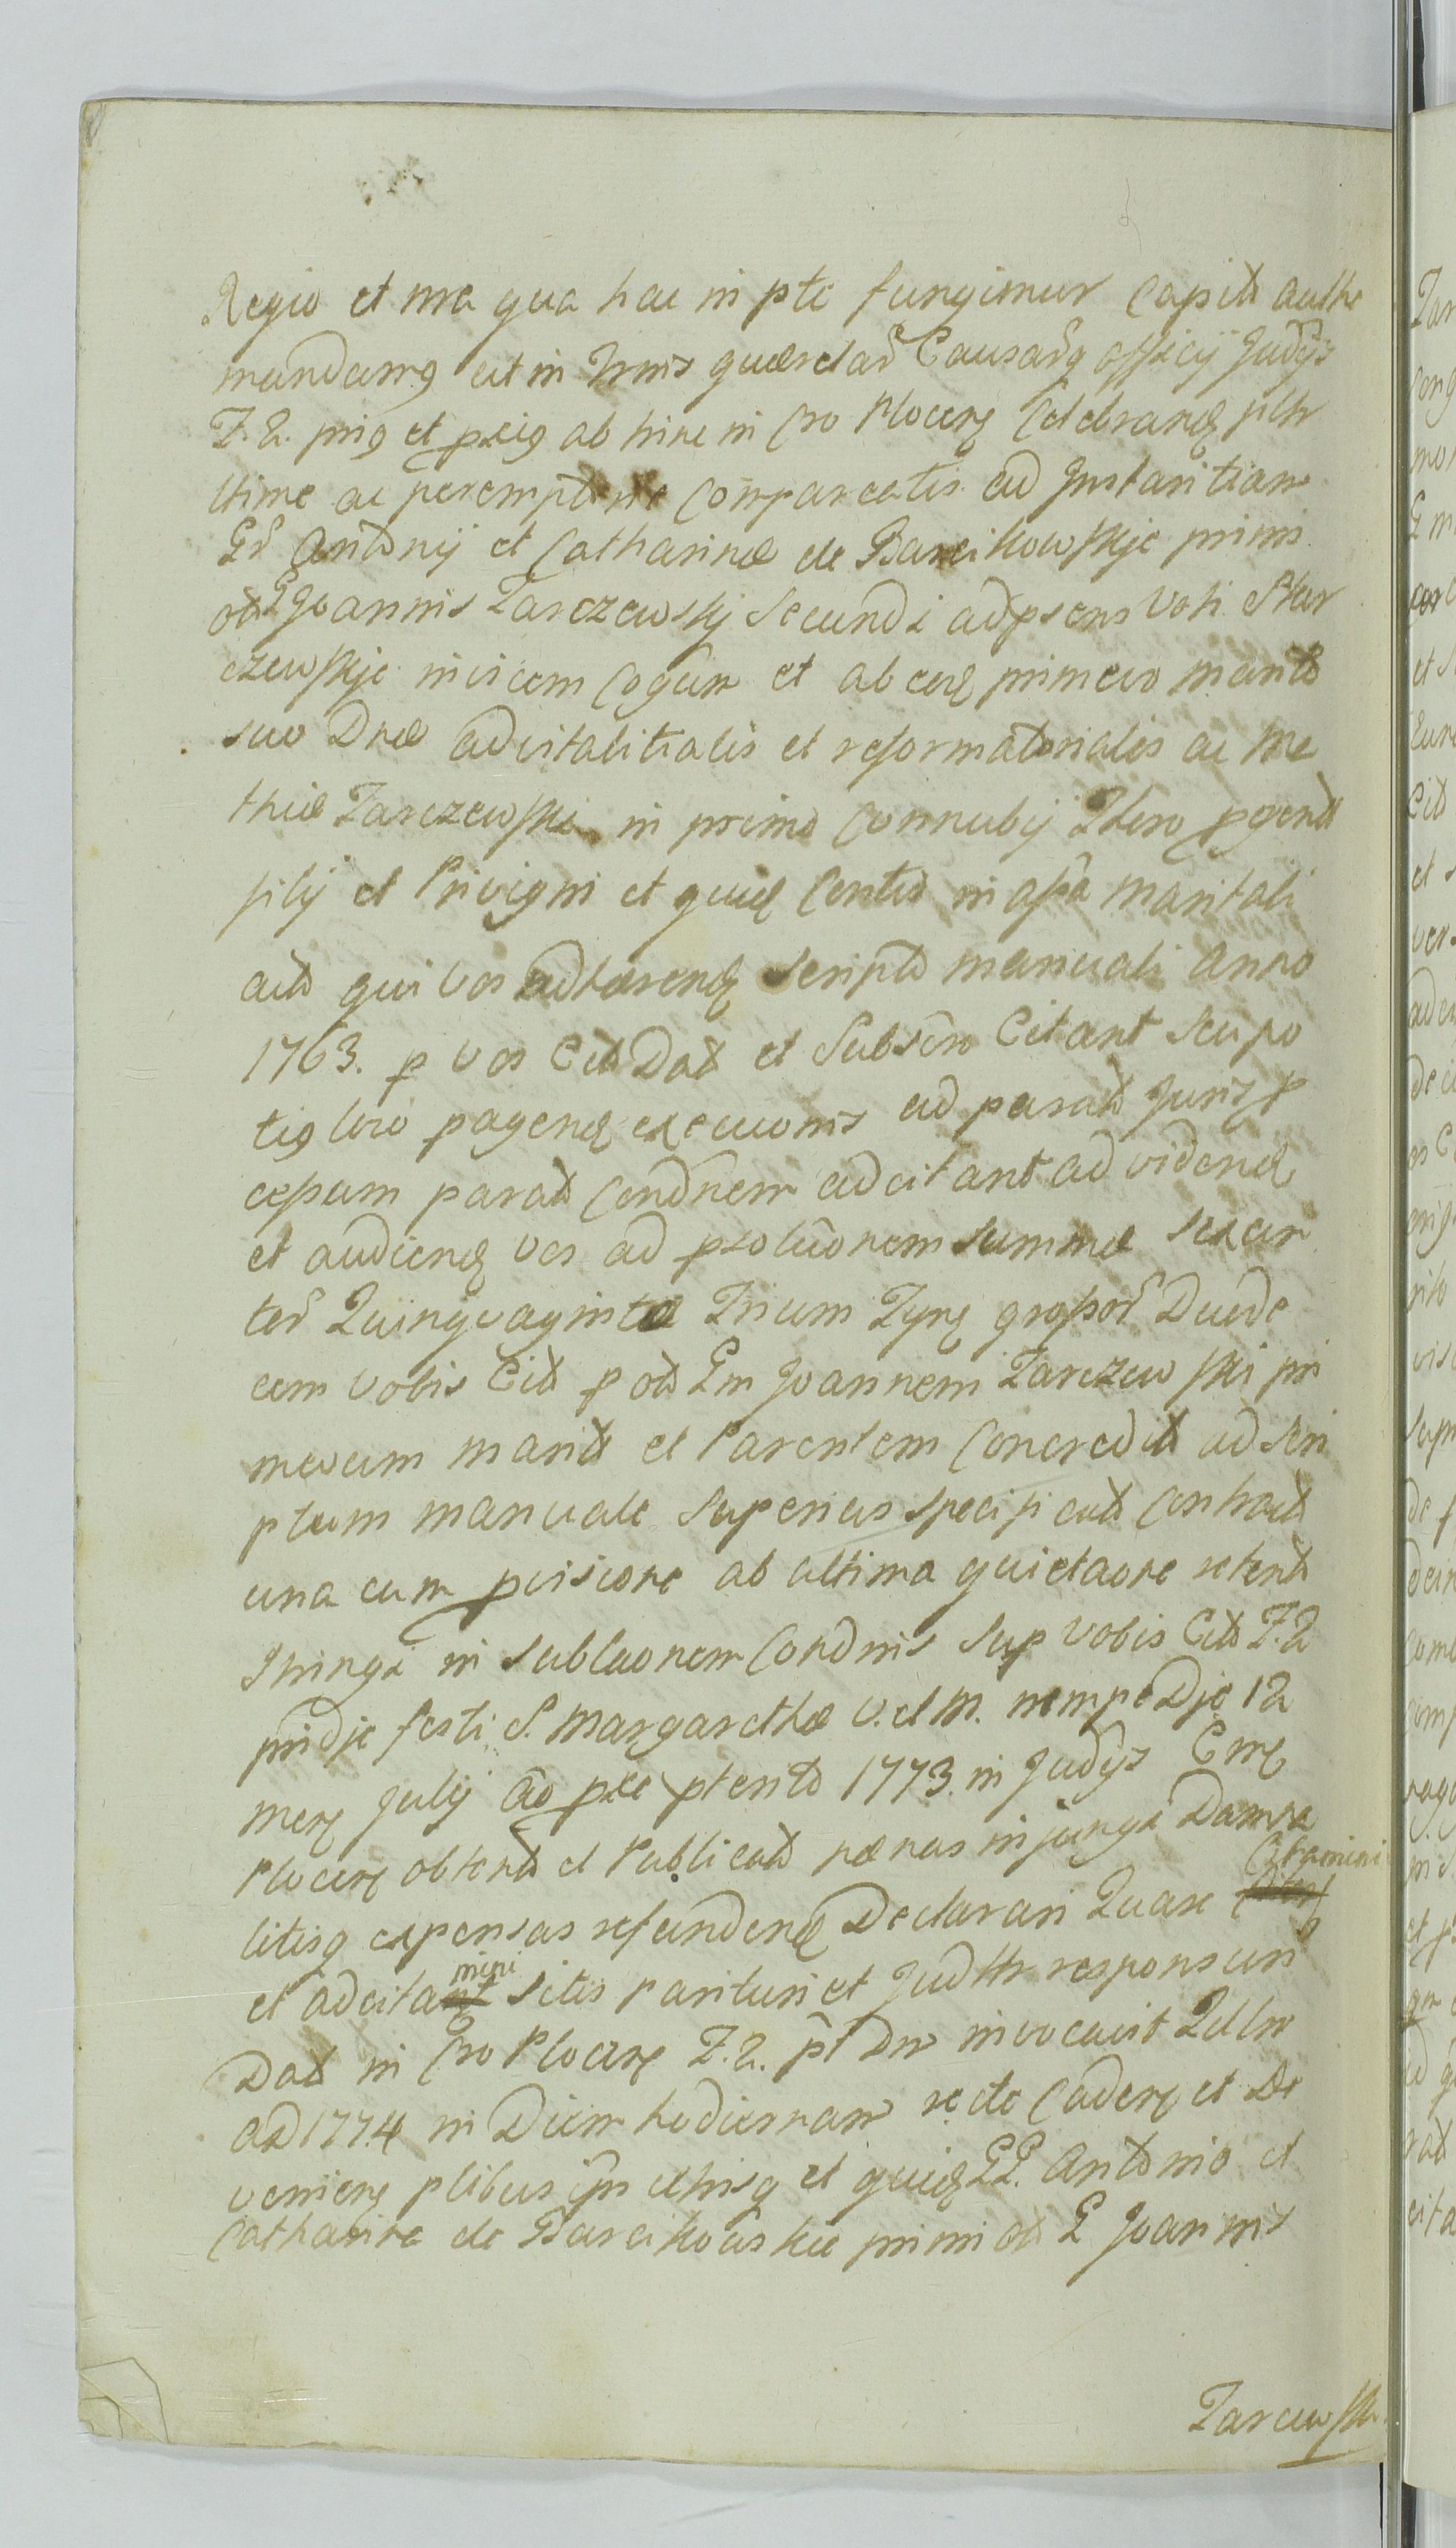 Regio et nra qua hac in pte fungimur Capitl autho
mandamq ut in Trnis querelar Causarq officij Judijs
T. P. priq et pxiq ab hinc in Cro Plocen Celebrand pltr
ltime ac peremptorie compareatis ad Instantiam
GG Antonij et Catharinæ de Barcikowskje primi
ol G Joannis Tarczewskj Secundi ad psens Voti Star
czewskje invicem Cogum et ab eod primevo marito
suo Dnæ advitalitialis et reformatorialis ac Ma
thiæ Tarczewski in primo Connubij Thoro pgenit
filij et Privigni et quid Contto in assa maritali
acto qui vos adhærend Scripto manuali Anno
1763. p vos Citt Dat et Subscro Citant seu po
tiq loco pagend execuonis ad parat Juris p
cepum parat Condnem adcitant ad vidend
et audiend vos ad psoluonem summæ sexcen
ter Quinquaginta Trium Tynf grossor Duode
cem vobis Citt p olt Gm Joannem Tarczewski pri
mevum marit et Parentem Concredit ad Scri
ptum manuale superius specificat contract
una cum pvisione ab ultima quietaone retent
Iningi in sublaonem Condnis sup vobis Citt T. P.
pridje festi S. Margarethæ V. et M. nempe Dje 12
mens Julij Ao pxe pterito 1773. in Judijs Crm
Plocen obtent et Publicat pænas injungi Damna
litisq expensas refundend Declarari Quare Citamini
et adcitamini sitis parituri et Judltr responsuri
Dat in Cro Plocen T. P. pt Dm invocavit Qdlm
AD 1774 in Diem hodiernam recte Caden et De
venien pltibus ipm ethisq et quid GG. Antonio et
Catharina de Barcikowskie primi olt G Joannis
Tarczewski